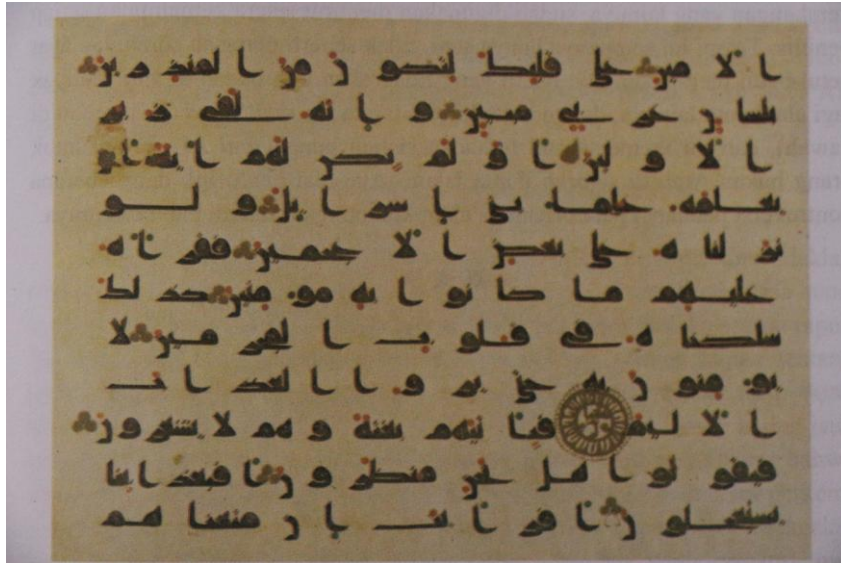 الامين على قلبك لتكون من المنذرين
بلسان عربي مبين وانه لفي زبر
الاولين اولم يكن لهم اية ان
يعلمه علموا بني اسرايل ولو
نزلناه على بعض الاعجمين فقراه
عليهم ما كانوا به مومنين كذلك
سلكناه في قلوب المجرمين لا
يومنون به حتى يروا العذاب
الاليم فياتيهم بغتة وهم لا يشعرون
فيقولوا هل نحن منظرون افبعذابنا
يستعجلون افرايت ان متعناهم